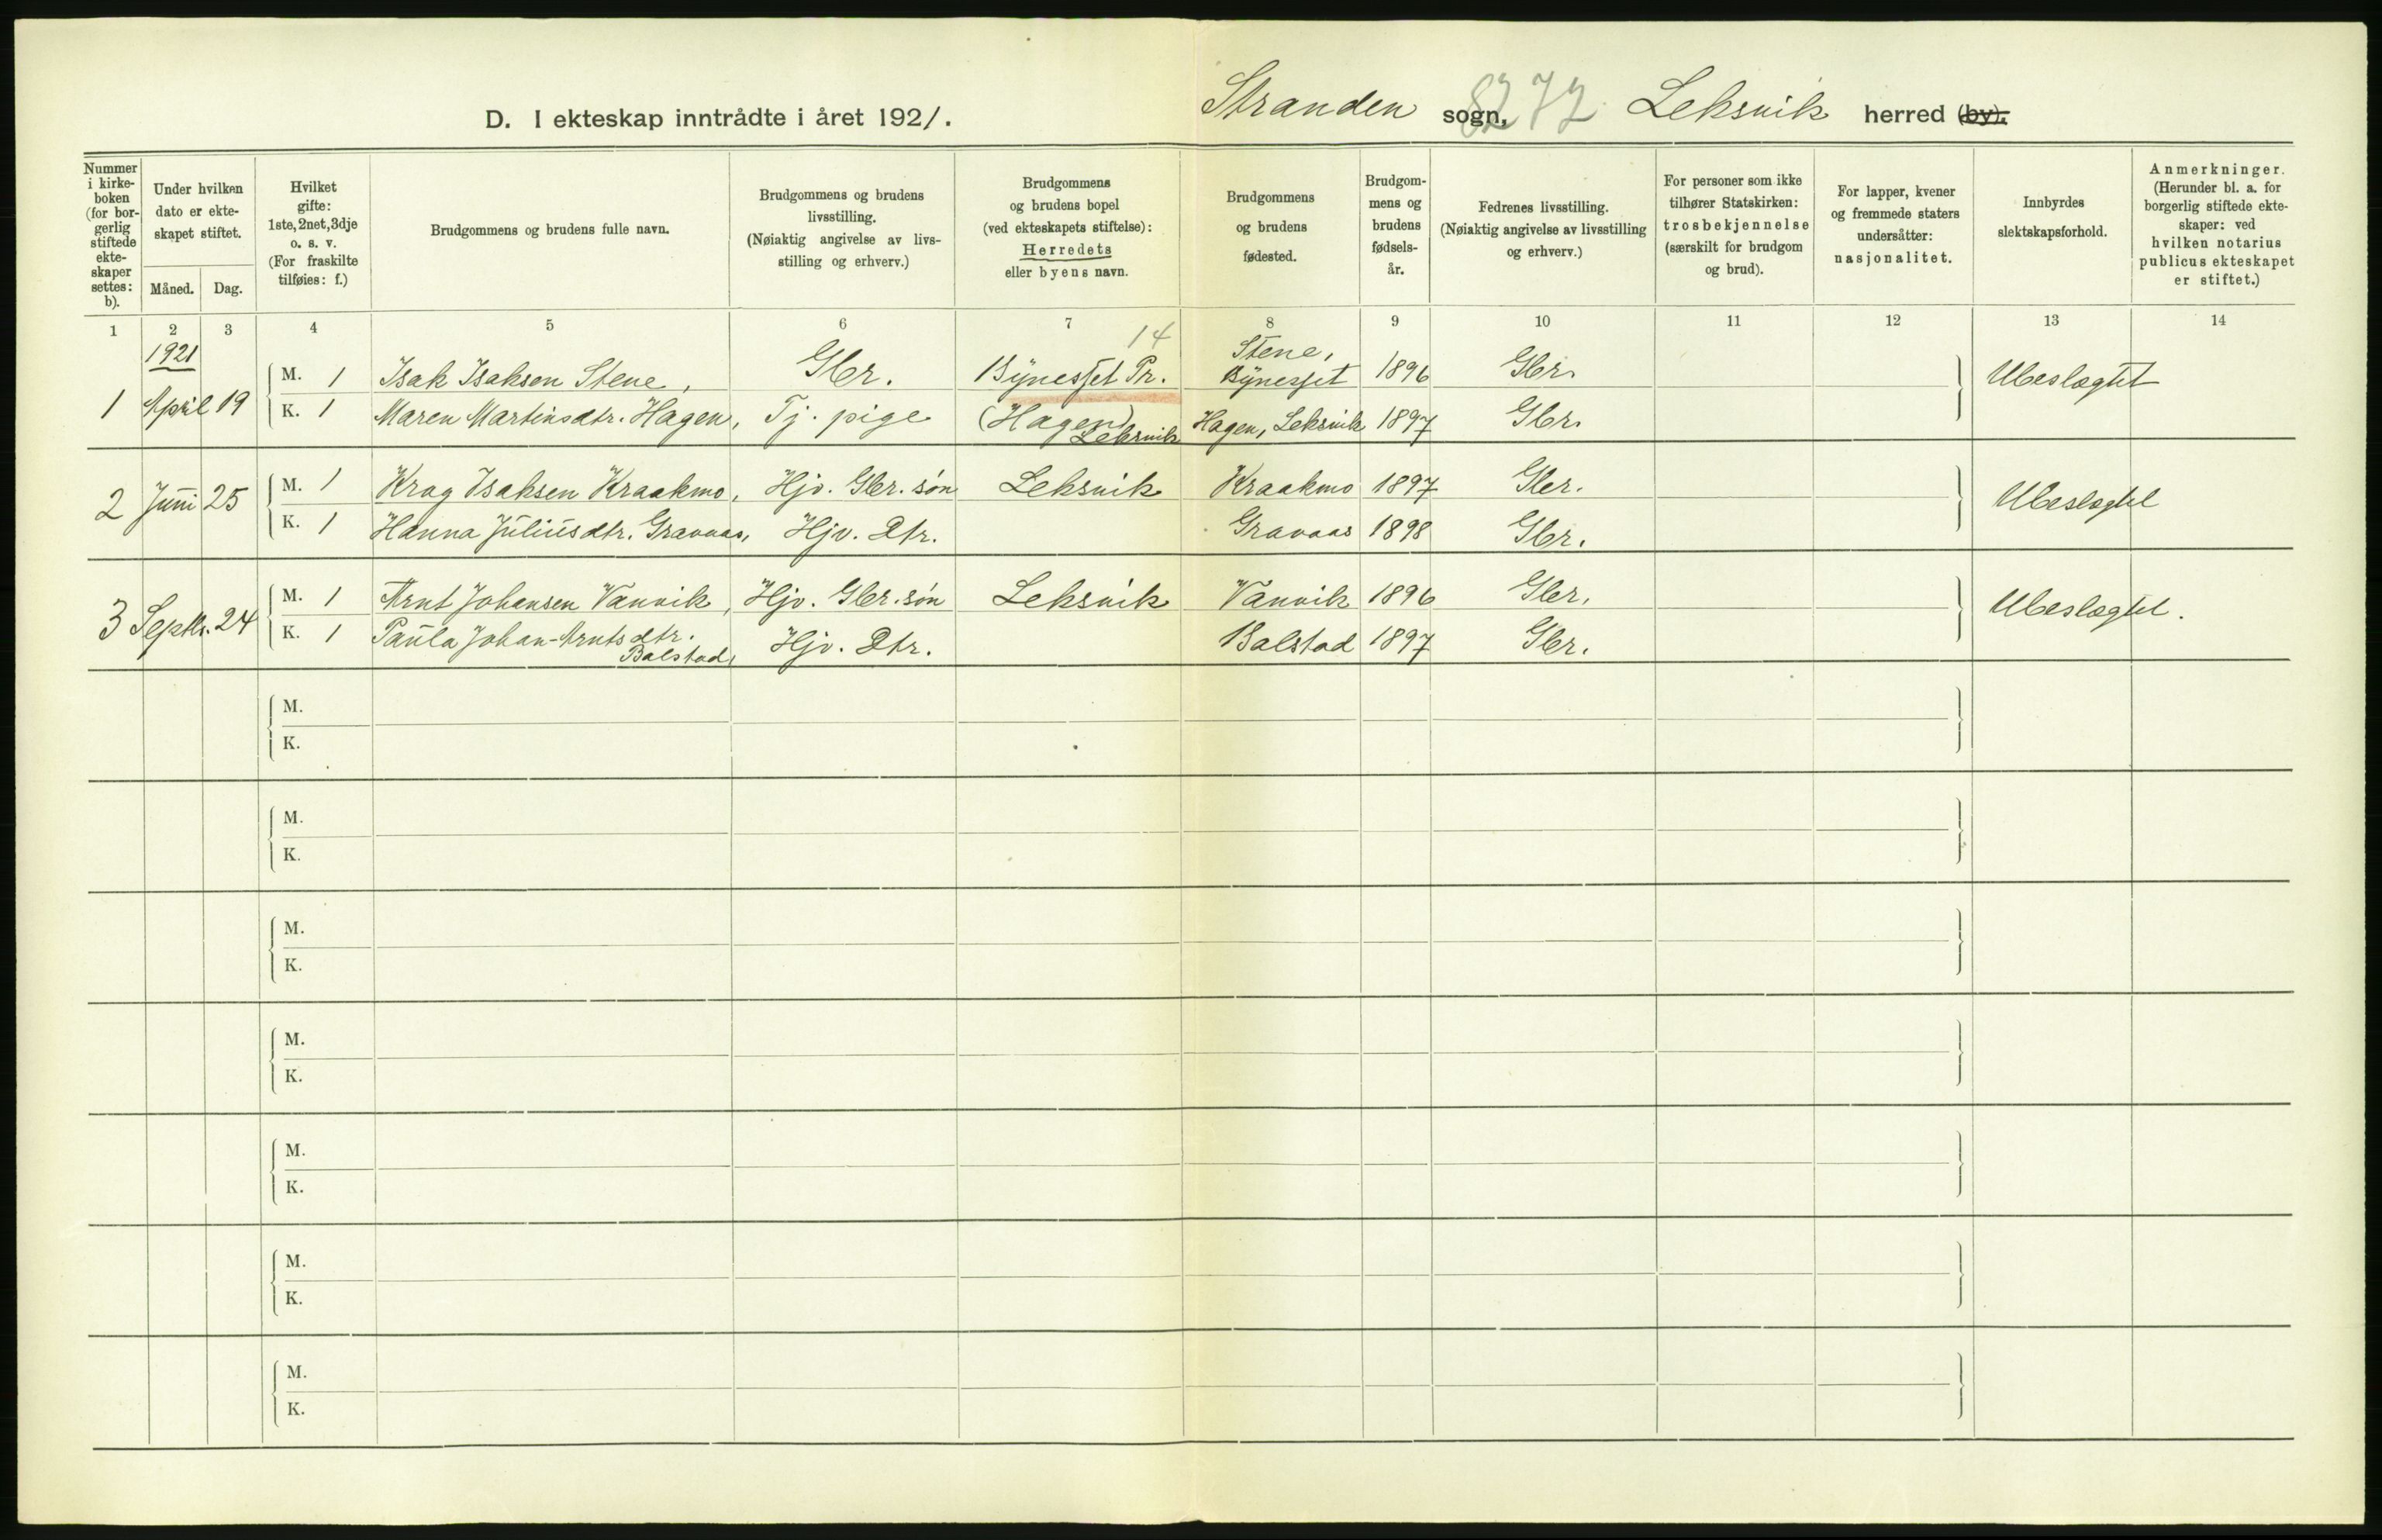 D. I ekteskap inntrådte i året 1921. Stranden sogn, 8272 Leksvik herred (by).
Nummer i kirke-boken (for bor-gerlig stiftede ekte-skaper settes: b).
Under hvilken dato er ekte-skapet stiftet.
Måned. Dag.
Hvilket gifte: 1ste, 2net, 3dje o. s. v. (For fraskilte tilføies: f.)
Brudgommens og brudens fulle navn.
Brudgommens og brudens livsstilling. (Nøiaktig angivelse av livs-stilling og erhverv.)
Brudgommens og brudens bopel (ved ekteskapets stiftelse): Herredets eller byens navn.
Brudgommens og brudens fødested.
Brudgom-mens og brudens fødsels-år.
Fedrenes livsstilling. (Nøiaktig angivelse av livsstilling og erhverv.)
For personer som ikke tilhører Statskirken: trosbekjennelse (særskilt for brudgom og brud).
For lapper, kvener og fremmede staters undersåtter: nasjonalitet.
Innbyrdes slektskapsforhold.
Anmerkninger. (Herunder bl. a. for borgerlig stiftede ekte-skaper: ved hvilken notarius publicus ekteskapet er stiftet.)
1 2 3 4 5 6 7 8 9 10 11 12 13 14
1921 14
1 April 19 M. 1 Isak Isaksen Stene, Gbr. Bynesset Tr. Stene, Bynesset 1896 Gbr. Ubeslægtet
K. 1 Maren Martinsdtr. Hagen, Tj. pige (Hagen) Leksvik Hagen, Leksvik 1897 Gbr.
2 Juni 25 M. 1 Krag Isaksen Kraakmo, Hjv. Gbr. søn Leksvik Kraakmo 1897 Gbr. Ubeslægtet
K. 1 Hanna Juliusdtr. Gravaas, Hjv. Dtr. Gravaas 1898 Gbr.
3 Septbr. 24 M. 1 Arnt Johansen Vanvik, Hjv. Gbr. søn Leksvik Vanvik 1896 Gbr. Ubeslægtet.
K. 1 Paula Johan-Arntsdtr. Balstad, Hjv. Dtr. Balstad 1897 Gbr.
M.
K.
M.
K.
M.
K.
M.
K.
M.
K.
M.
K.
M.
K.